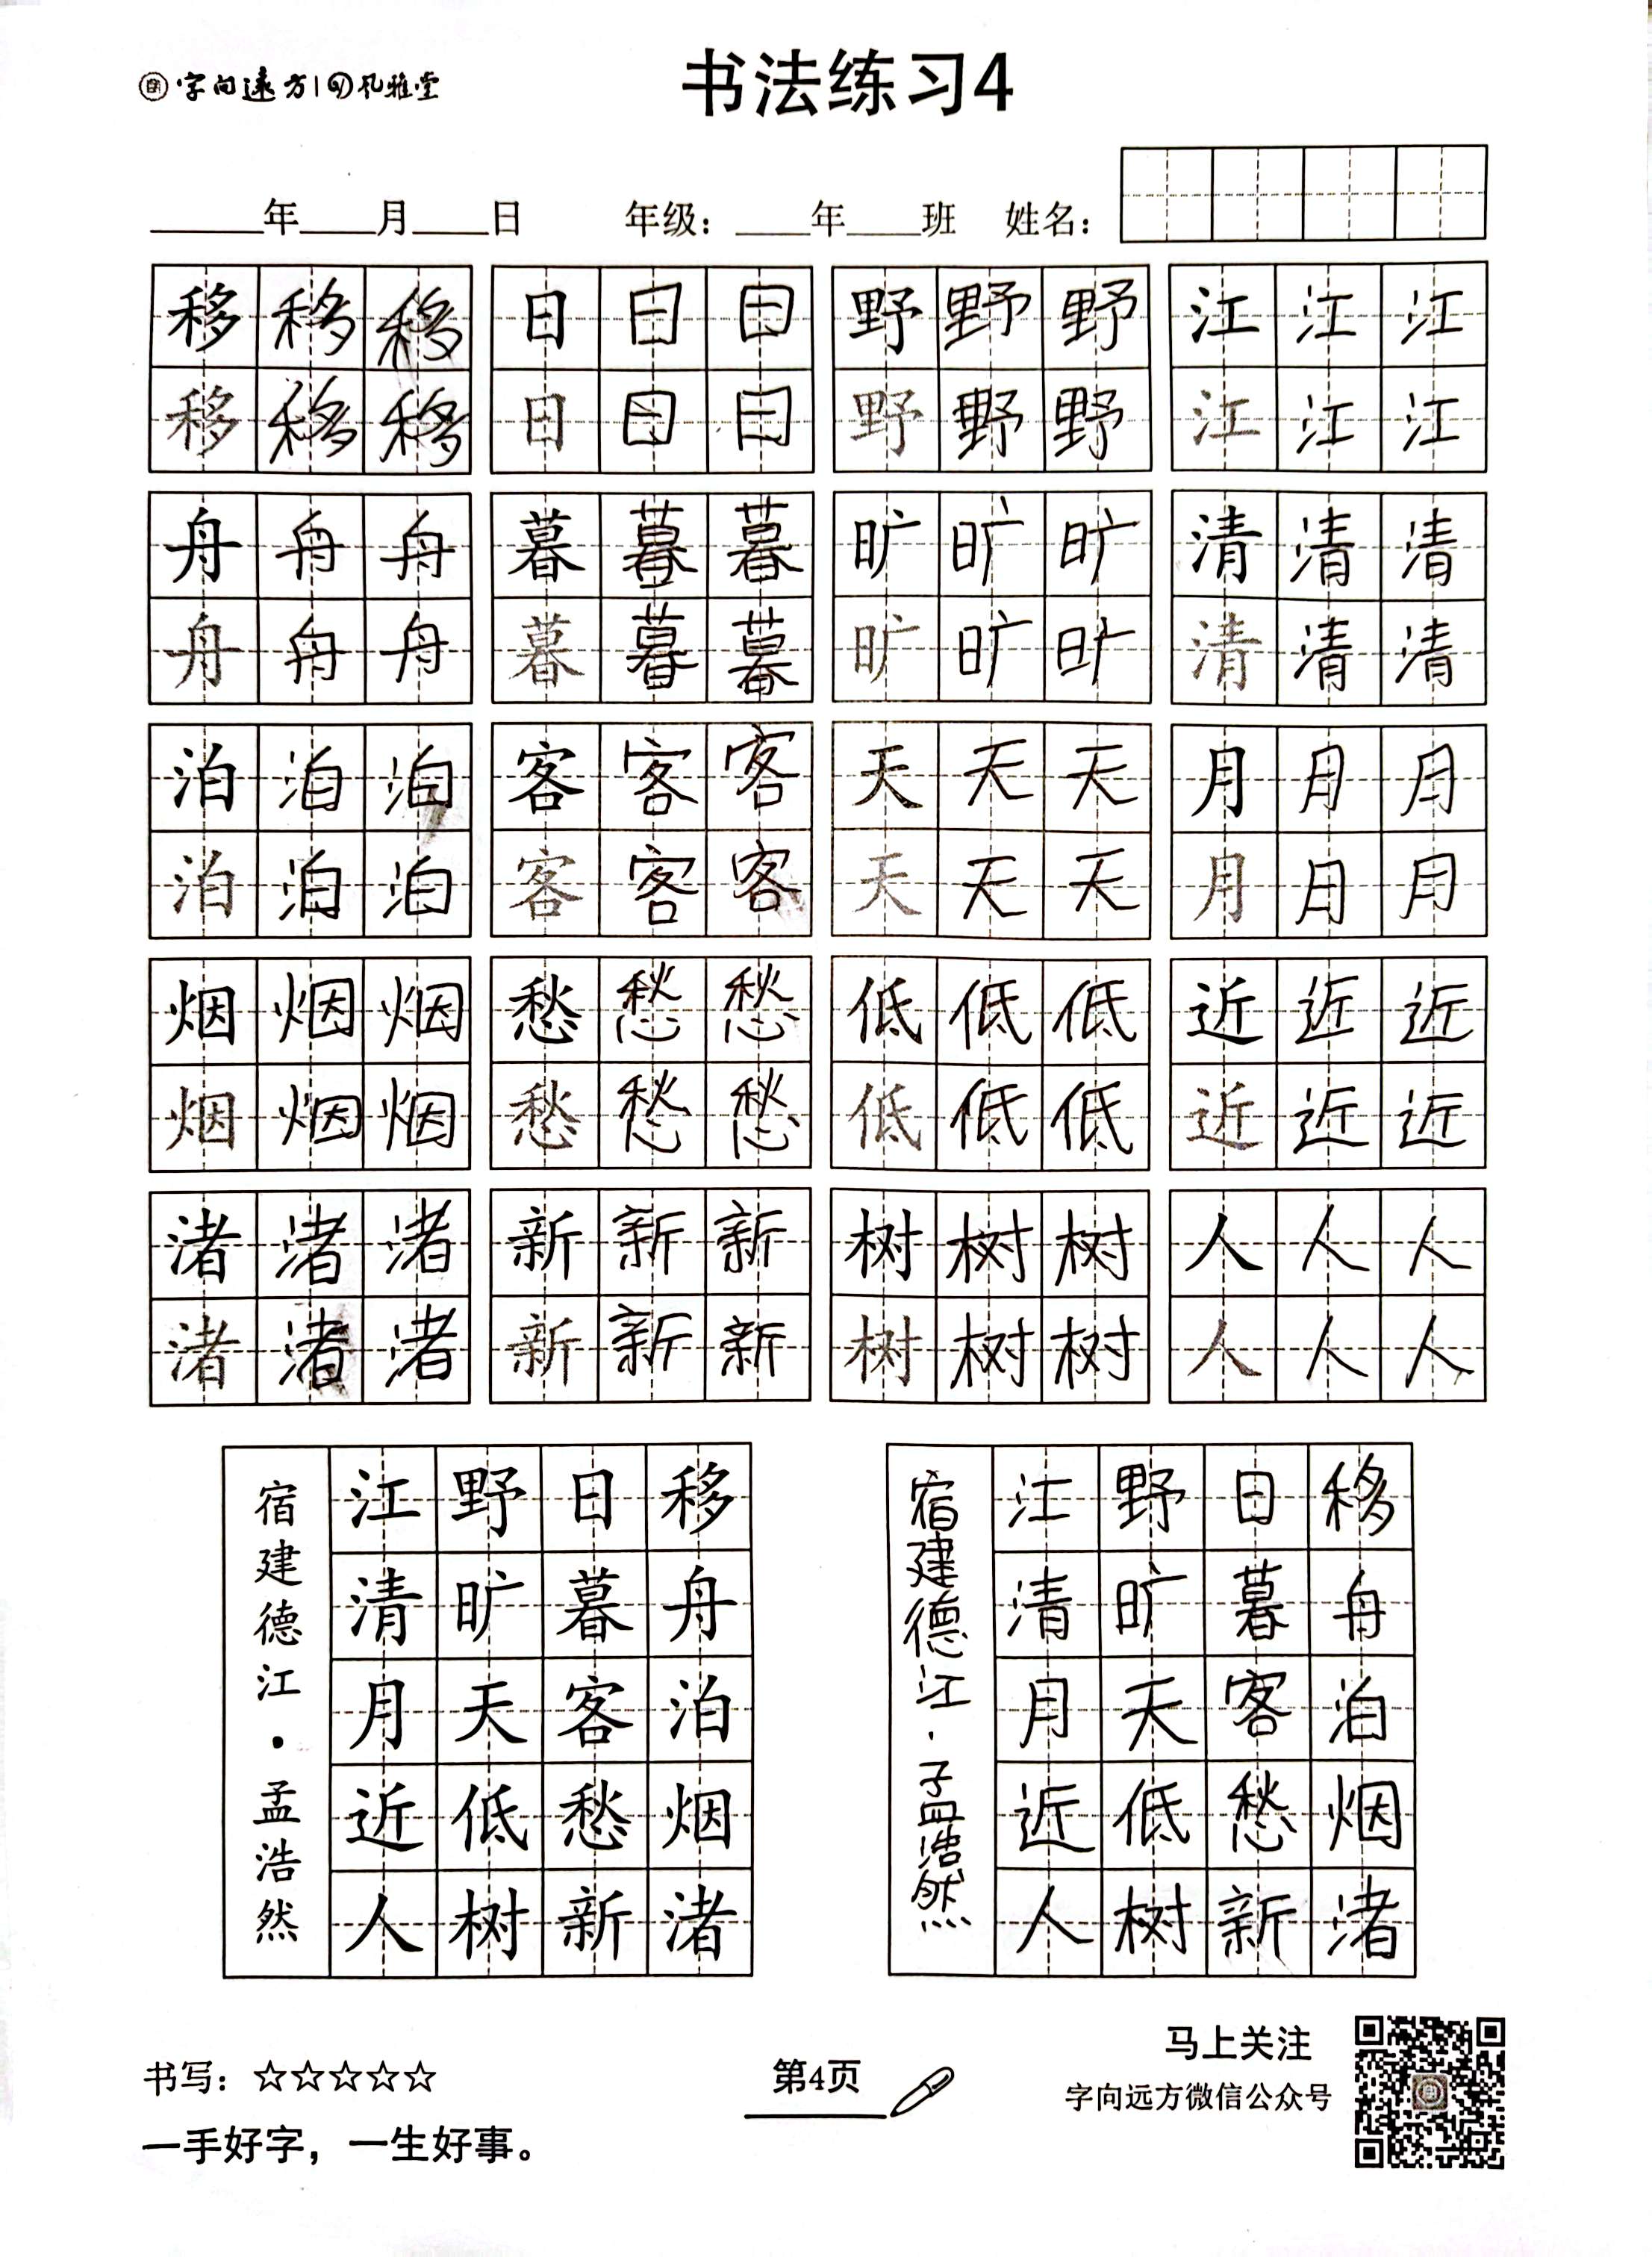 字向远方 | 孔雅堂
书法练习4
年 月 日 年级： 年 班 姓名：
移移移 日日日 野野野 江江江
移移移 日日日 野野野 江江江
舟舟舟 暮暮暮 旷旷旷 清清清
舟舟舟 暮暮暮 旷旷旷 清清清
泊泊泊 客客客 天天天 月月月
泊泊泊 客客客 天天天 月月月
烟烟烟 愁愁愁 低低低 近近近
烟烟烟 愁愁愁 低低低 近近近
渚渚渚 新新新 树树树 人人人
渚渚渚 新新新 树树树 人人人
移舟泊烟渚
日暮客愁新
野旷天低树
江清月近人
宿建德江·孟浩然
移舟泊烟渚
日暮客愁新
野旷天低树
江清月近人
宿建德江·孟浩然
书写：☆☆☆☆☆
一手好字，一生好事。
第4页
马上关注
字向远方微信公众号